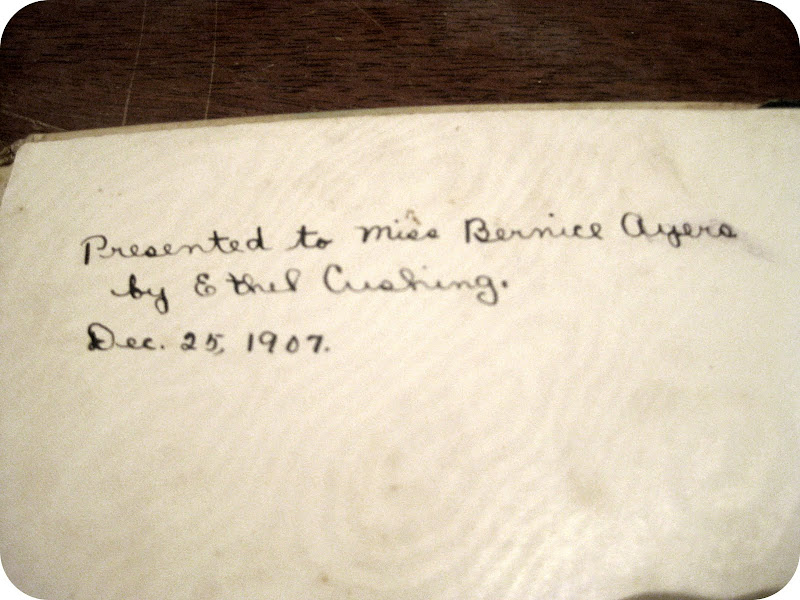 Presented to Miss Bernice Ayers
by Ethel Cushing.
Dec. 25, 1907.